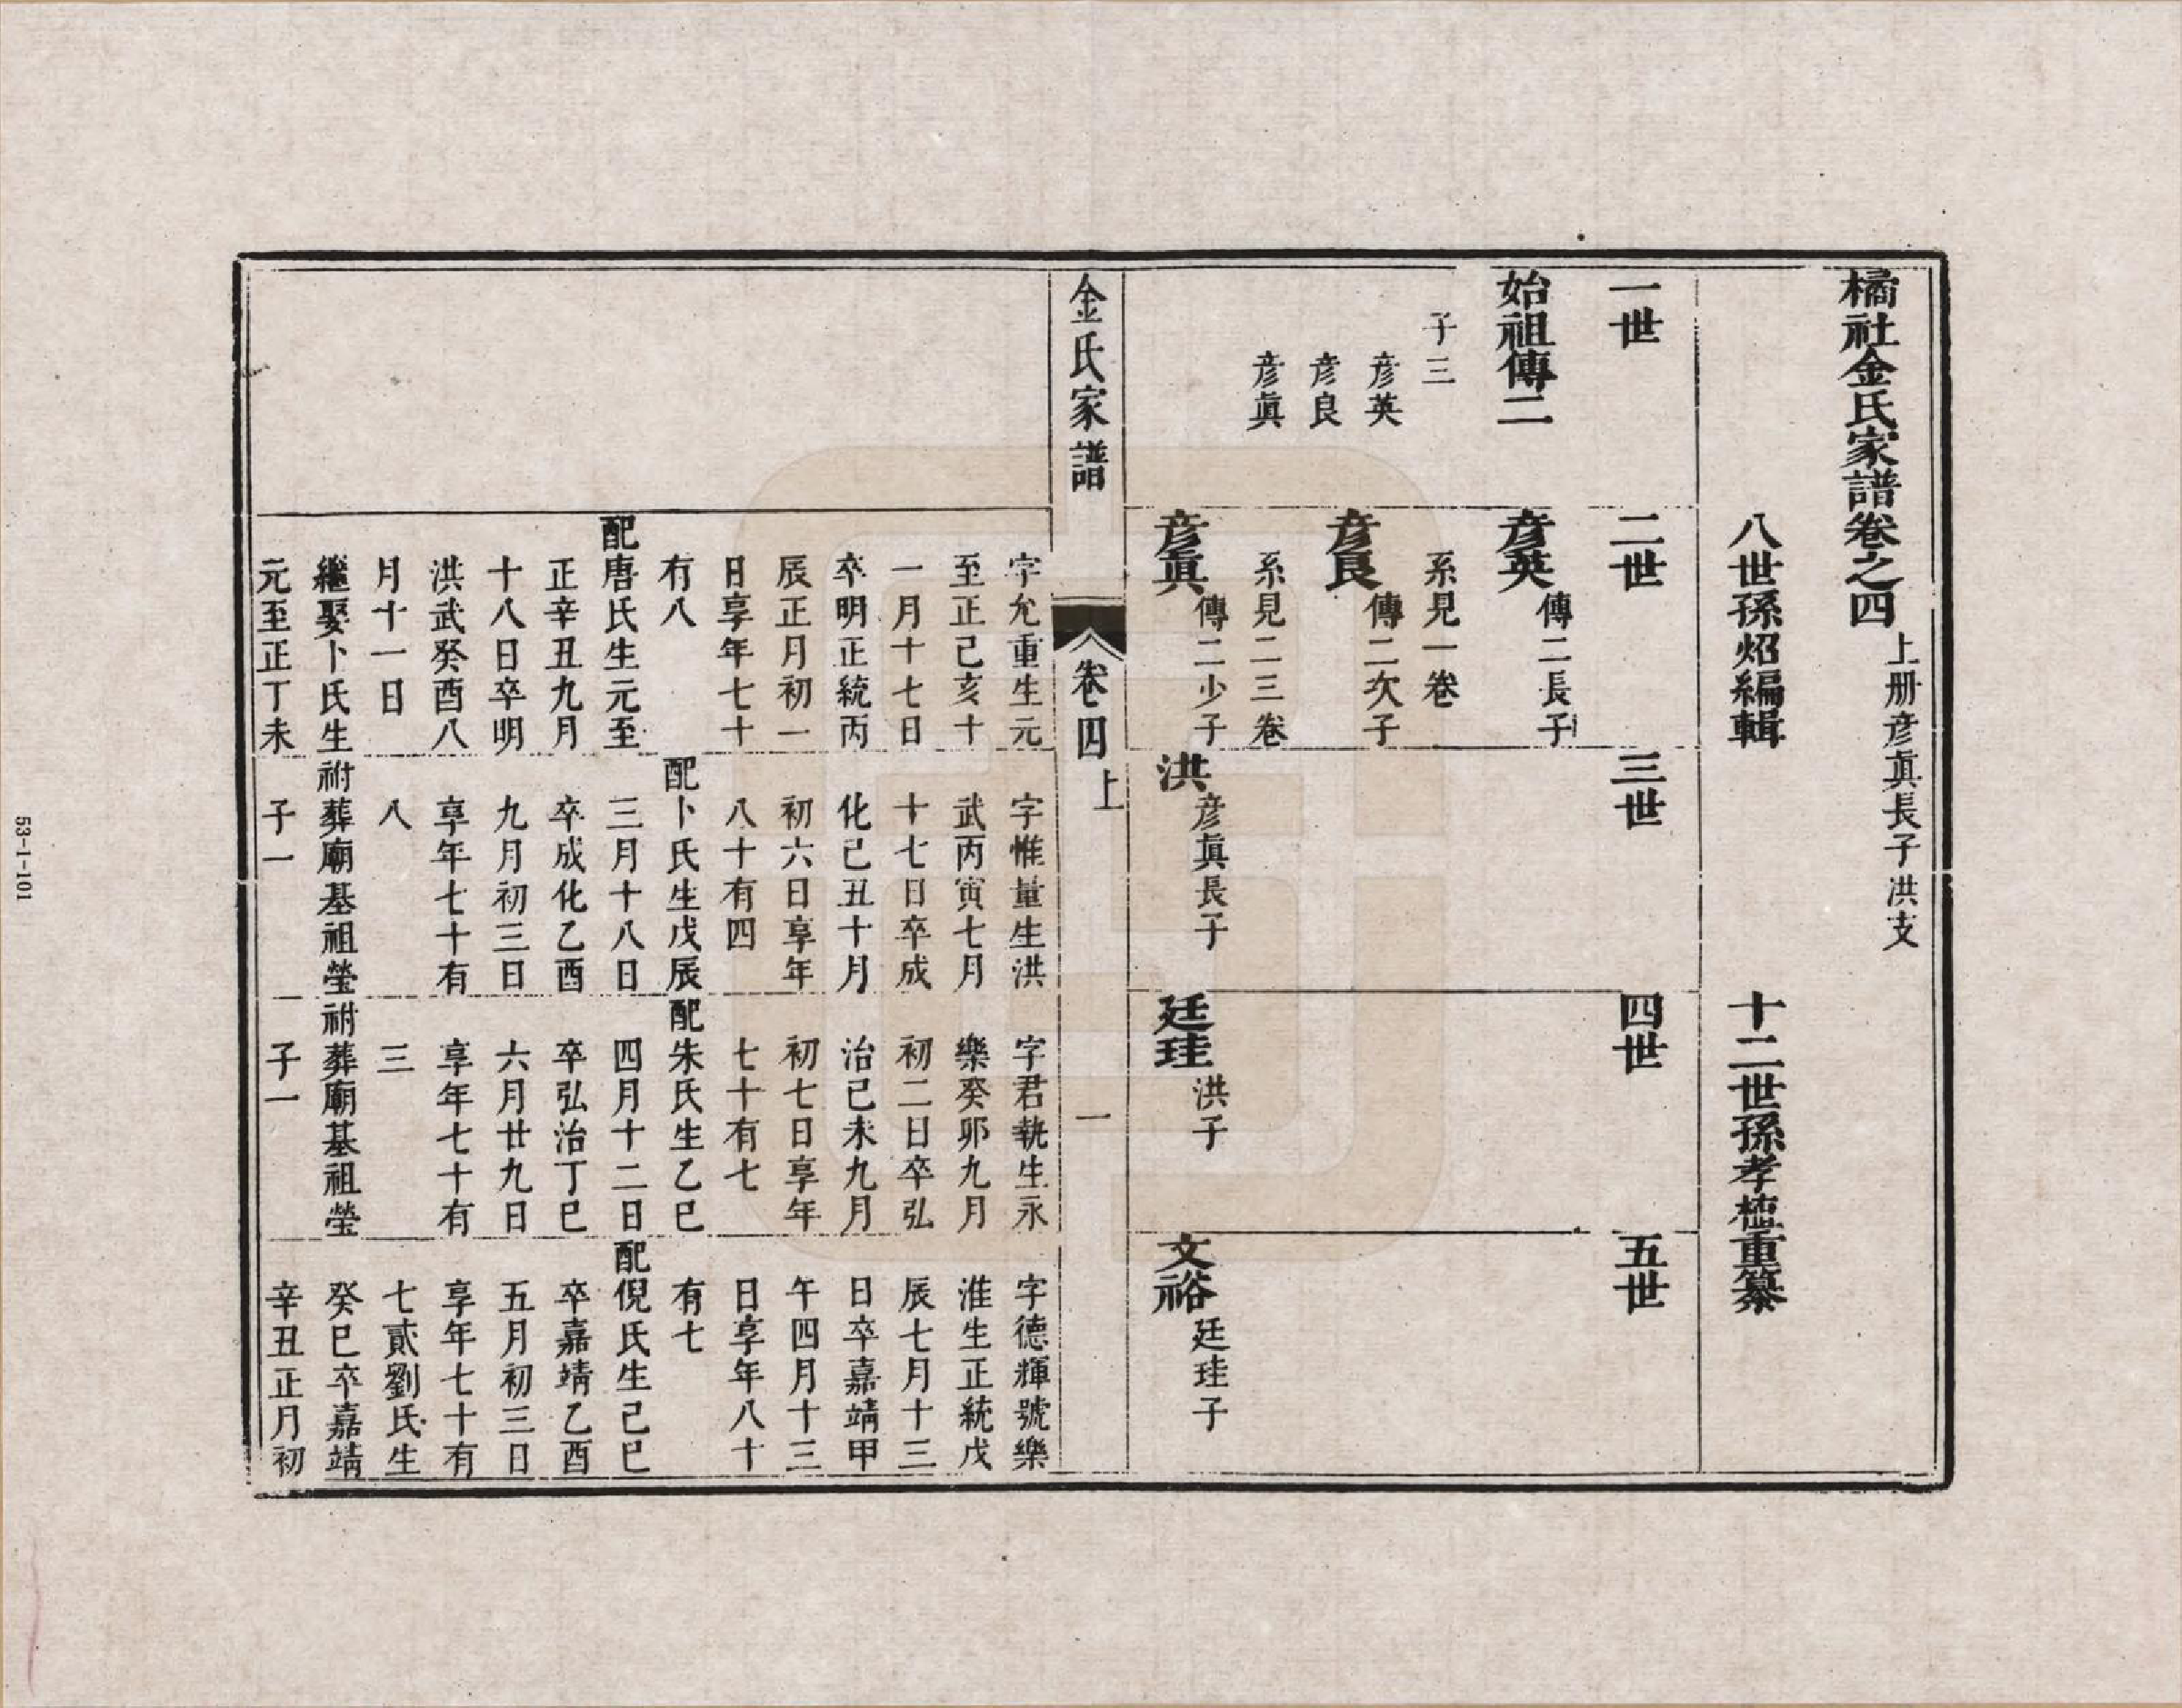 橘社金氏家譜卷之四
上册彦眞長子洪支
八世孫炤編輯
十二世孫孝植重纂
一世
二世
三世
四世
五世
始祖傳二
子三
彦英
彦良
彦眞
彦英
傳二長子
系見一卷
彦良
傳二次子
系見二三卷
彦眞
傳二少子
洪
彦眞長子
廷珪
洪子
文裕
廷珪子
金氏家譜
卷四上
一
字允重生元
至正己亥十
一月十七日
卒明正統丙
辰正月初一
日享年七十
有八
配唐氏生元至
正辛丑九月
十八日卒明
洪武癸酉八
月十一日
繼娶卜氏生
元至正丁未
字惟量生洪
武丙寅七月
十七日卒成
化己丑十月
初六日享年
八十有四
配卜氏生戊辰
三月十八日
卒成化乙酉
九月初三日
享年七十有
八
祔葬廟基祖塋
子一
字君執生永
樂癸卯九月
初二日卒弘
治己未九月
初七日享年
七十有七
配朱氏生乙巳
四月十二日
卒弘治丁巳
六月廿九日
享年七十有
三
祔葬廟基祖塋
子一
字德輝號樂
淮生正統戊
辰七月十三
日卒嘉靖甲
午四月十三
日享年八十
有七
配倪氏生己巳
卒嘉靖乙酉
五月初三日
享年七十有
七貳劉氏生
癸巳卒嘉靖
辛丑正月初
53-1-101